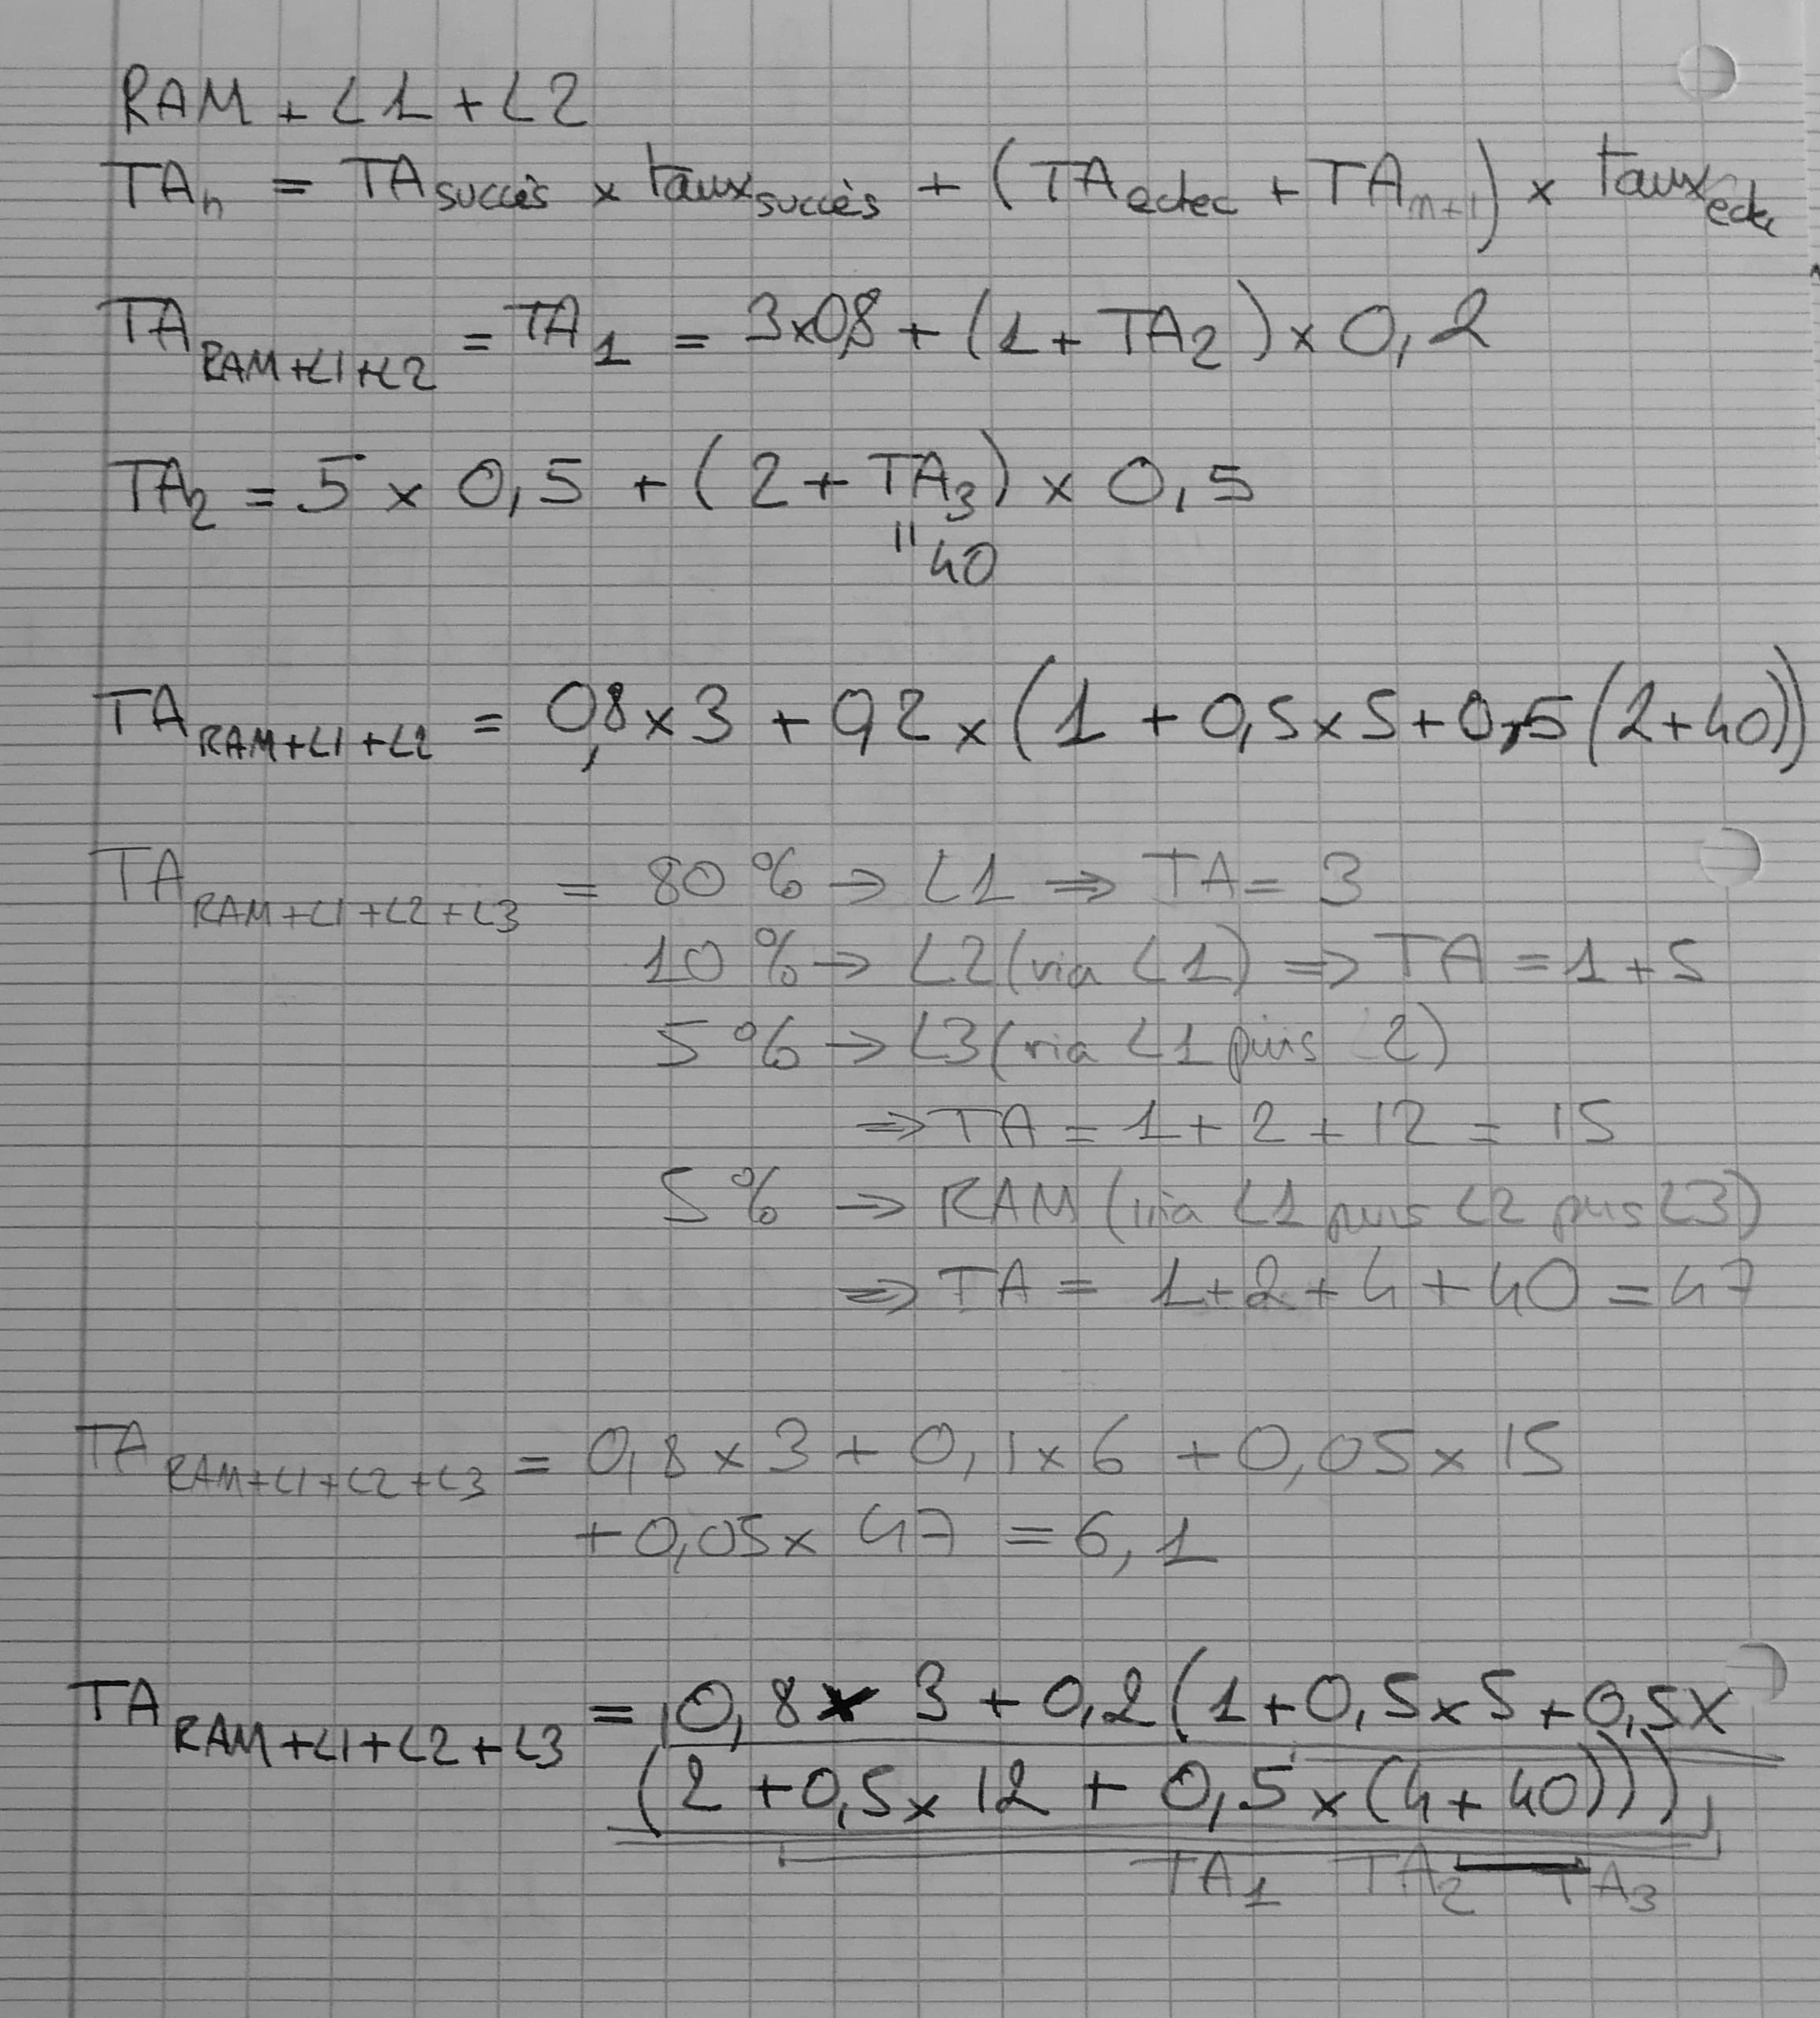 RAM + L1 + L2
TAn = TA succès × taux succès + (TA echec + TA n+1) × taux echec
TA RAM+L1+L2 = TA1 = 3×0,8 + (1 + TA2) × 0,2
TA2 = 5 × 0,5 + (2 + TA3) × 0,5
" 40
TA RAM+L1+L2 = 0,8 × 3 + 0,2 × (1 + 0,5 × 5 + 0,5 (2+40))
TA RAM+L1+L2+L3 = 80 % → L1 ⇒ TA = 3
10 % → L2 (via L1) ⇒ TA = 1 + 5
5 % → L3 (via L1 puis L2)
⇒ TA = 1 + 2 + 12 = 15
5 % → RAM (via L1 puis L2 puis L3)
⇒ TA = 1+2+4+40 = 47
TA RAM+L1+L2+L3 = 0,8 × 3 + 0,1 × 6 + 0,05 × 15
+ 0,05 × 47 = 6,1
TA RAM+L1+L2+L3 = 0,8 × 3 + 0,2 (1 + 0,5 × 5 + 0,5 ×
(2 + 0,5 × 12 + 0,5 × (4 + 40)))
TA1 TA2 TA3